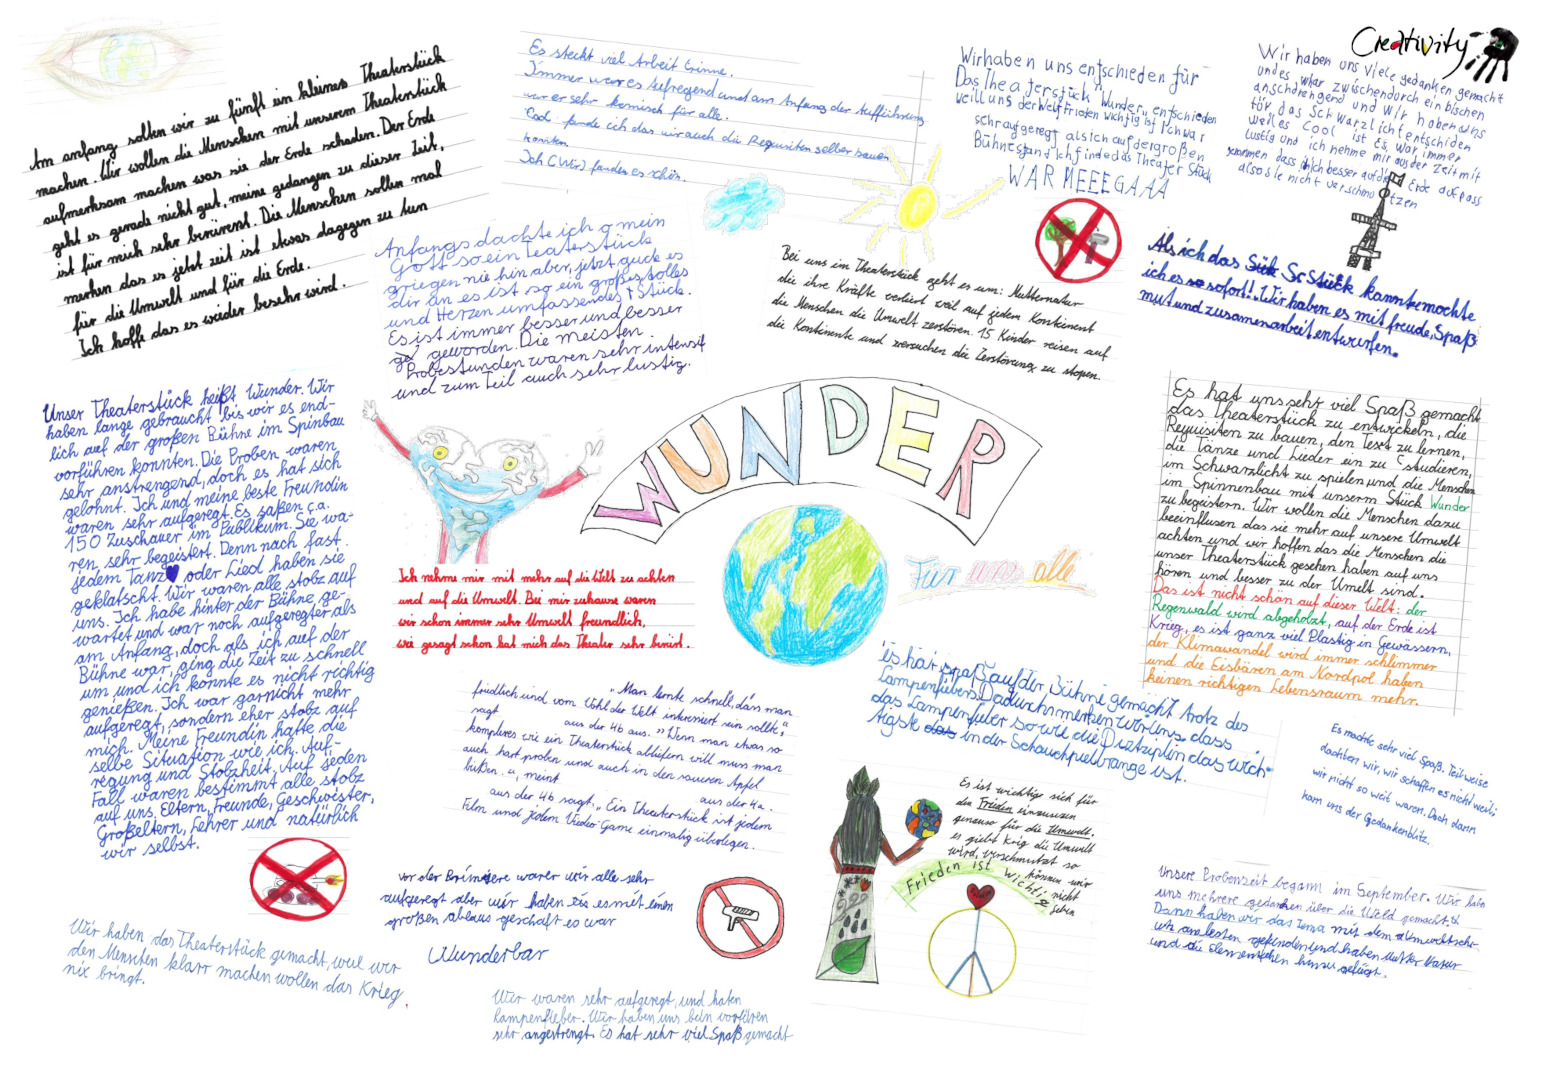 Creativity
Am anfang sollten wir zu fünft ein kleines Theaterstück
machen. Wir wollen die Menschen mit unserem Theaterstück
aufmerksam machen was sie der Erde schaden. Der Erde
geht es gerade nicht gut, meine gedangen zu dieser Zeit,
ist für mich sehr berürent. Die Menschen sollen mal
merken das es jetzt zeit ist etwas dagegen zu tun
für die Umwelt und für die Erde.
Ich hoffe das es wieder besehr wird.
Es steckt viel Arbeit
Immer war es Aufregend und am Anfang der Aufführung
war er sehr komisch für alle.
Cool fande ich das wir auch die Requisiten selber bauen
konnten
Ich (Wir) fanden es schön.
Wir haben uns entschieden für
Das Theaterstück "Wunder" entschieden
weill uns der Welt Frieden wichtig ist Ich war
sehr aufgeregt als ich auf der großen
Bühne stand Ich finde das Theater Stück
WAR MEEEGAAA
Wir haben uns viele gedanken gemacht
und es war zwischendurch ein bischen
anschdrengend und Wir haben uns
för das Schwarzlicht entschiden
weil es Cool ist Es war immer
lustig und ich nehme mir aus der Zeit mit
genommen dass ich besser auf die Erde aufpass
also sie nicht verschmutzen
Anfangs dachte ich o mein
Gott so ein teaterstück
griegen nie hin aber, jetzt guck es
dir an es ist so ein großes tolles
und Herzen umfassendes Stück.
Es ist immer besser und besser
geworden. Die meisten
Probestunden waren sehr intensif
und zum teil auch sehr lustig.
Bei uns im Theaterstück geht es um: Mutternatur
die ihre Kräfte verliert weil auf jedem Kontinent
die Menschen die Umwelt zerstören. 15 Kinder reisen auf
die Kontinente und versuchen die Zerstörung zu stopen.
Als ich das Stück kannte mochte
ich es so sofort! Wir haben es mit freude, Spaß
mut und zusamenarbeit entwurfen.
Unser Theaterstück heißt Wunder. Wir
haben lange gebraucht bis wir es end-
lich auf der großen Bühne im Spinbau
vorführen konnten. Die Proben waren
sehr anstrengend, doch es hat sich
gelohnt. Ich und meine beste Freundin
waren sehr aufgeregt. Es saßen ca.
150 Zuschauer im Publikum. Sie wa-
ren sehr begeistert. Denn nach fast
jedem Tanz oder Lied haben sie
geklatscht. Wir waren alle stolz auf
uns. Ich habe hinter der Bühne ge-
wartet und war noch aufgeregter als
am Anfang, doch als ich auf der
Bühne war, ging die Zeit zu schnell
um und ich konnte es nicht richtig
genießen. Ich war garnicht mehr
aufgeregt, sondern eher stolz auf
mich. Meine Freundin hatte die
selbe Situation wie ich. Auf-
regung und Stolzheit. Auf jeden
Fall waren bestimmt alle stolz
auf uns, Eltern, Freunde, Geschwister,
Großeltern, Lehrer und natürlich
wir selbst.
WUNDER
Für uns alle
Ich nehme mir mit mehr auf die Welt zu achten
und auf die Umwelt. Bei mir zuhause waren
wir schon immer sehr Umwelt freundlich,
wie gesagt schon hat mich das Theater sehr berürt.
Es hat uns sehr viel Spaß gemacht
das Theaterstück zu entwickeln, die
Requisiten zu bauen, den Text zu lernen,
die Tänze und Lieder ein zu studieren,
im Schwarzlicht zu spielen und die Menschen
im Spinnenbau mit unserm Stück Wunder
zu begeistern. Wir wollen die Menschen dazu
beeinflusen das sie mehr auf unsere Umwelt
achten und wir hoffen das die Menschen die
unser Theaterstück gesehen haben auf uns
hören und besser zu der Umelt sind.
Das ist nicht schön auf dieser Welt: der
Regenwald wird abgeholzt, auf der Erde ist
Krieg, es ist ganz viel Plastig in Gewässern,
der Klimawandel wird immer schlimmer
und die Eisbären am Nordpol haben
keinen richtigen Lebensraum mehr.
"Man lernte schnell, dass man
friedlich und vom Wohl der Welt intressiert sein sollte",
sagt aus der 4b aus. "Wenn man etwas so
komplexes wie ein Theaterstück abliefern will muss man
auch hart proben und auch in den sauren Apfel
beißen.", meint aus der 4a.
aus der 4b sagt: "Ein Theaterstück ist jedem
Film und jedem Video-Game einmalig überlegen.
es hat spaß auf der Bühne gemacht trotz des
Lampenfiebers. Dadurch merken wir uns, dass
das Lampenfieber so wie die Disziplin das wich-
tigste in der Schauspielrange ist.
Es machte sehr viel Spaß. Teilweise
dachten wir, wir schaffen es nicht weil;
wir nicht so weit waren. Doch dann
kam uns der Gedankenblitz.
Es ist wichtig sich für
den Frieden einzusezen
genauso für die Umwelt.
es giebt Krig die Umwelt
wird verschmutzt so
können wir
nicht
leben
Frieden ist wichtig
vor der waren wir alle sehr
aufgeregt aber wir haben es mit einen
großen ablaus geschaft es war
Wunderbar
Wir haben das Theaterstück gemacht, weil wir
den Menschen klarr machen wollen das Krieg
nix bringt.
Wir waren sehr aufgeregt, und haten
Lampenfieber. Wir haben uns bein vorfüren
sehr angestrengt. Es hat sehr viel Spaß gemacht
Unsere Probenzeit begann im September. Wir habn
uns mehrere gedanken über die Weld gemacht.
Dann haben wir das Tema mit dem Umweltschr-
utz am besten gefunden und haben Mutter Natur
und die Elementchen hinzu gefügt.